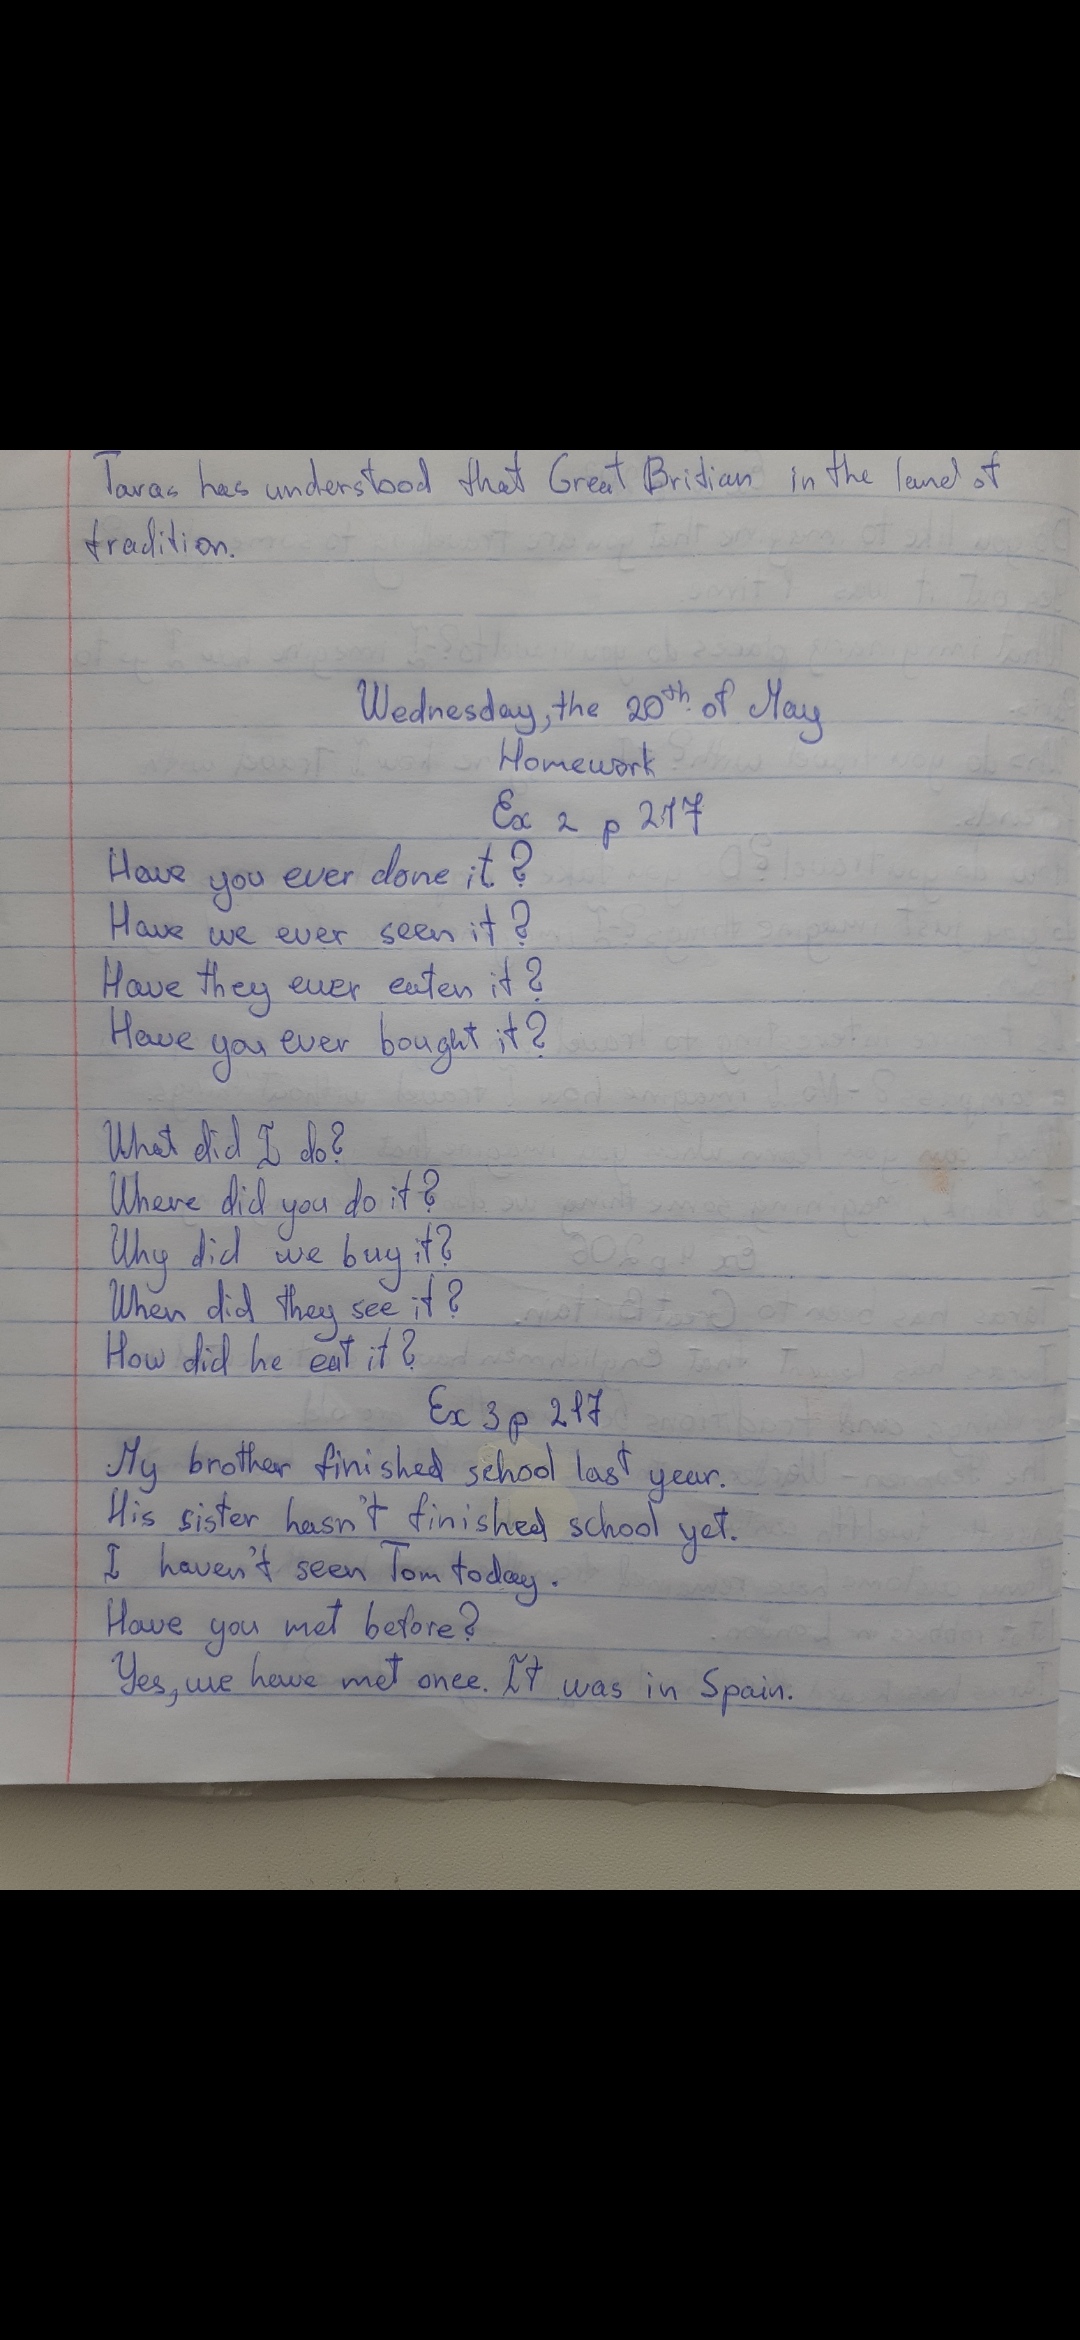 Taras has understood that Great Bridian in the land of
tradition.
Wednesday, the 20th of May
Homework
Ex 2 p 217
Have you ever done it?
Have we ever seen it?
Have they ever eaten it?
Have you ever bought it?
What did I do?
Where did you do it?
Why did we buy it?
When did they see it?
How did he eat it?
Ex 3 p 217
My brother finished school last year.
His sister hasn't finished school yet.
I haven't seen Tom today.
Have you met before?
Yes, we have met once. It was in Spain.